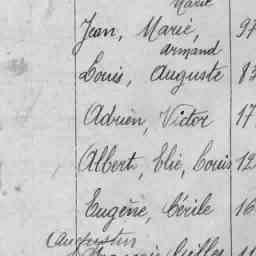 Marie
Jean, Marie, 97
Armand
Louis, Auguste 83
Adrien, Victor 17
Albert, Elie, Louis 12
Eugène, Cécile 16
Augustin